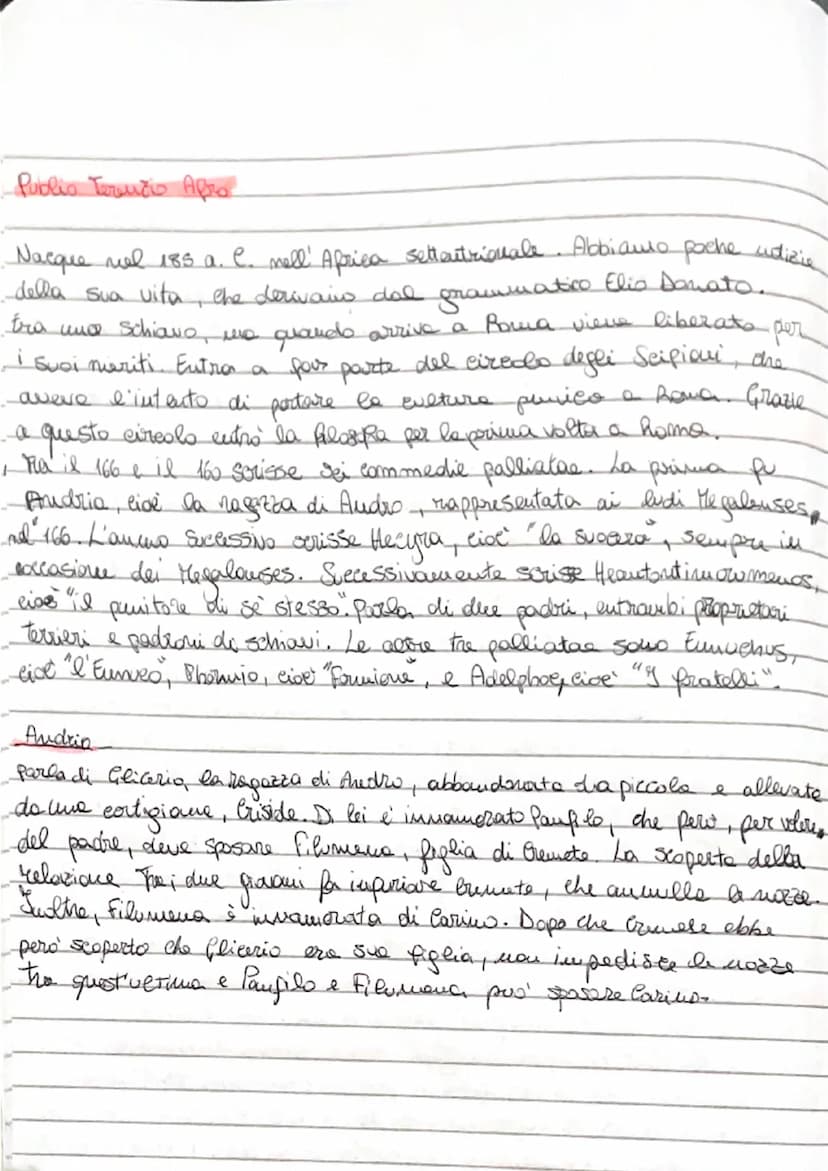 Publio Terenzio Afro
Nacque nel 185 a. C. nell'Africa settentrionale. Abbiamo poche notizie
della sua vita, che derivano dal grammatico Elio Donato.
Era uno schiavo, ma quando arriva a Roma viene liberato per
i suoi meriti. Entra a far parte del circolo degli Scipioni, che
aveva l'intento di portare la cultura punica a Roma. Grazie
a questo circolo entrò la filosofia per la prima volta a Roma.
Tra il 166 e il 160 scrisse sei commedie palliatae. La prima fu
Andria, cioè la ragazza di Andro, rappresentata ai ludi Megalenses,
nel 166. L'anno sucessivo scrisse Hecyra, cioè "la suocera", sempre in
occasione dei Megalenses. Successivamente scrisse Heautontimorumenos,
cioè "il punitore di sè stesso". Parla di due padri, entrambi proprietari
terrieri e padroni di schiavi. Le altre tre palliatae sono Eunuchus,
cioè "l'Eunuco", Phormio, cioè "Formione", e Adelphoe, cioè "I fratelli".
Andria
Parla di Gliceria, la ragazza di Andro, abbandonata da piccola e allevata
da una cortigiana, Criside. Di lei è innamorato Panfilo, che però, per volere
del padre, deve sposare Filumena, figlia di Cremete. La scoperta della
relazione tra i due giovani fa infuriare Cremete, che annulla le nozze.
Inoltre, Filumena è innamorata di Carino. Dopo che Cremete ebbe
però scoperto che Glicerio era sua figlia, non impedisce le nozze
tra quest'ultima e Panfilo e Filumena può sposare Carino.